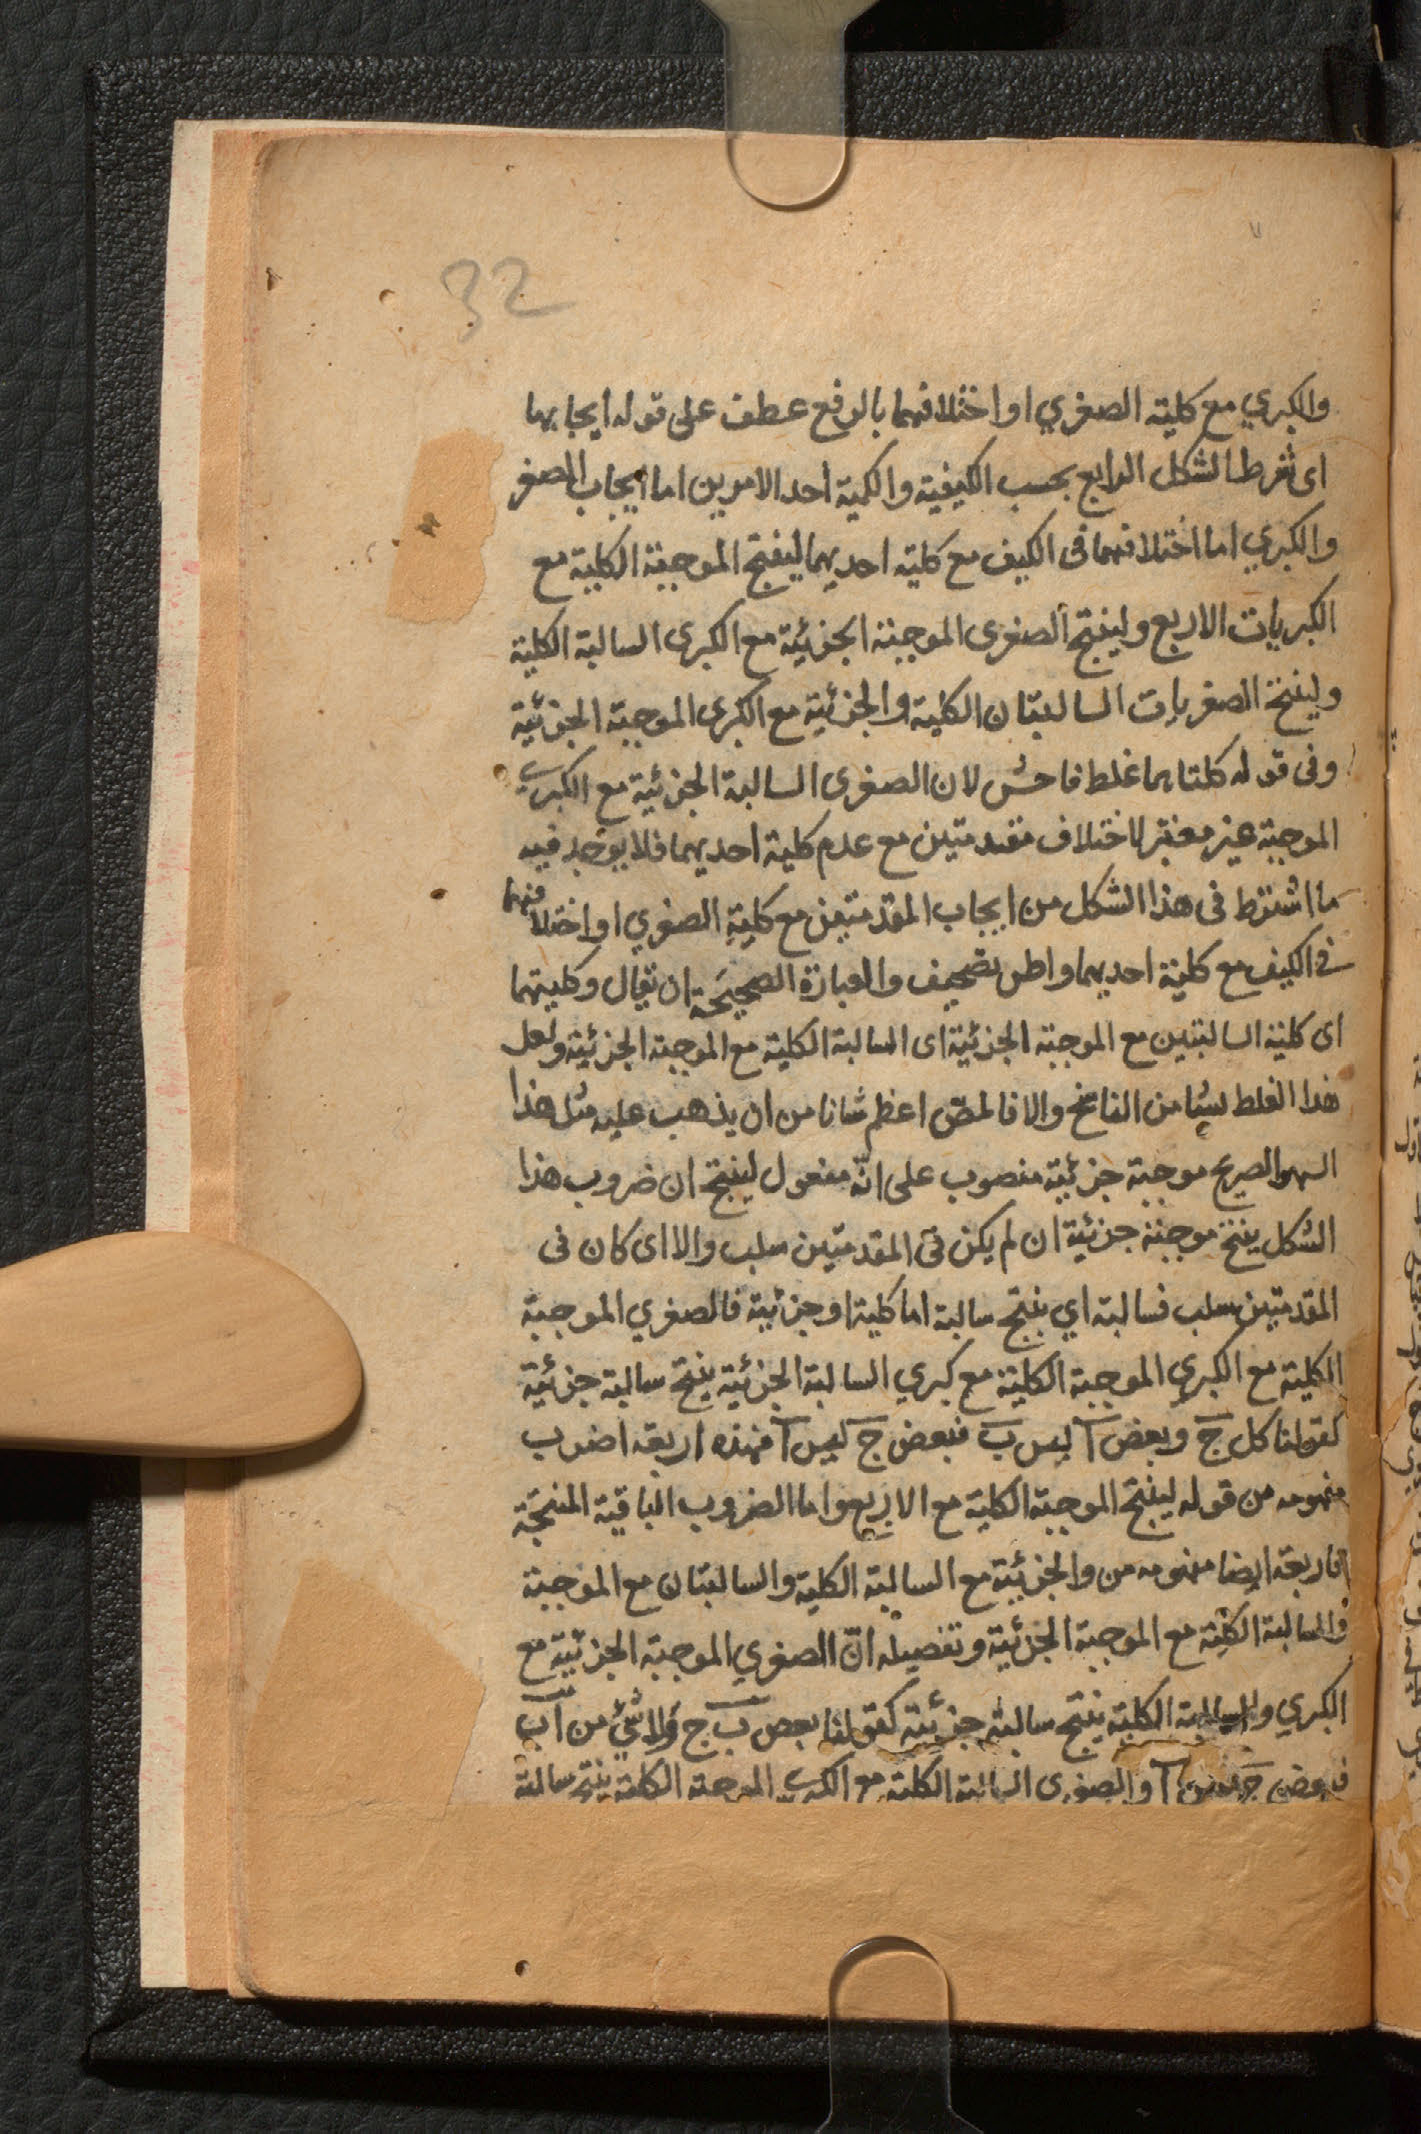 32
والكبري مع كلية الصغري او اختلافهما بالرفع عطف على قوله ايجابهما
اى شرط الشكل الرابع بحسب الكيفية والكمية احد الامرين اما ايجاب الصغر
والكبري اما اختلافهما فى الكيف مع كلية احديهما لينتج الموجبة الكلية مع
الكبريات الاربع ولينتج الصغرى الموجبة الجزئية مع الكبرى السالبة الكلية
ولينتج الصغريات السالبتان الكلية والجزئية مع الكبرى الموجبة الجزئية
وفى قوله كلتاهما غلط فاحش لان الصغرى السالبة الجزئية مع الكبرى
الموجبة غير معتبر لاختلاف مقدمتين مع عدم كلية احديهما فلا يوجد فيه
ما اشترط فى هذا الشكل من ايجاب المقدمتين مع كلية الصغري او اختلافهما
فى الكيف مع كلية احديهما واظن تصحيف والعبارة الصحيحة ان يقال وكليتهما
اى كلية السالبتين مع الموجبة الجزئية اى السالبة الكلية مع الموجبة الجزئية ولعل
هذا الغلط نشأ من الناسخ والا فالمص اعظم شانا من ان يذهب عليه مثل هذا
السهو الصريح موجبة جزئية منصوب على انه مفعول لينتج ان ضروب هذا
الشكل ينتج موجبة جزئية ان لم يكن فى المقدمتين سلب والا اى كان فى
المقدمتين سلب فسالبة اي ينتج سالبة اما كلية او جزئية فالصغري الموجبة
الكلية مع الكبري الموجبة الكلية مع كبري السالبة الجزئية ينتج سالبة جزئية
كقولنا كل ج وبعض آ ليس ب فبعض ج ليس آ فهذه اربعة اضرب
مفهومه من قوله لينتج الموجبة الكلية مع الاربع واما الضروب الباقية المنتجة
فاربعة ايضا مفهومه من والجزئية مع السالبة الكلية والسالبتان مع الموجبة
والسالبة الكلية مع الموجبة الجزئية وتفصيله انّ الصغري الموجبة الجزئية مع
الكبري والسالبة الكلية ينتج سالبة جزئية كقولنا بعض ب ج ولا شئ من آ ب
فبعض ج ليس آ والصغرى السالبة الكلية مع الكبرى الموجبة الكلية ينتج سالبة